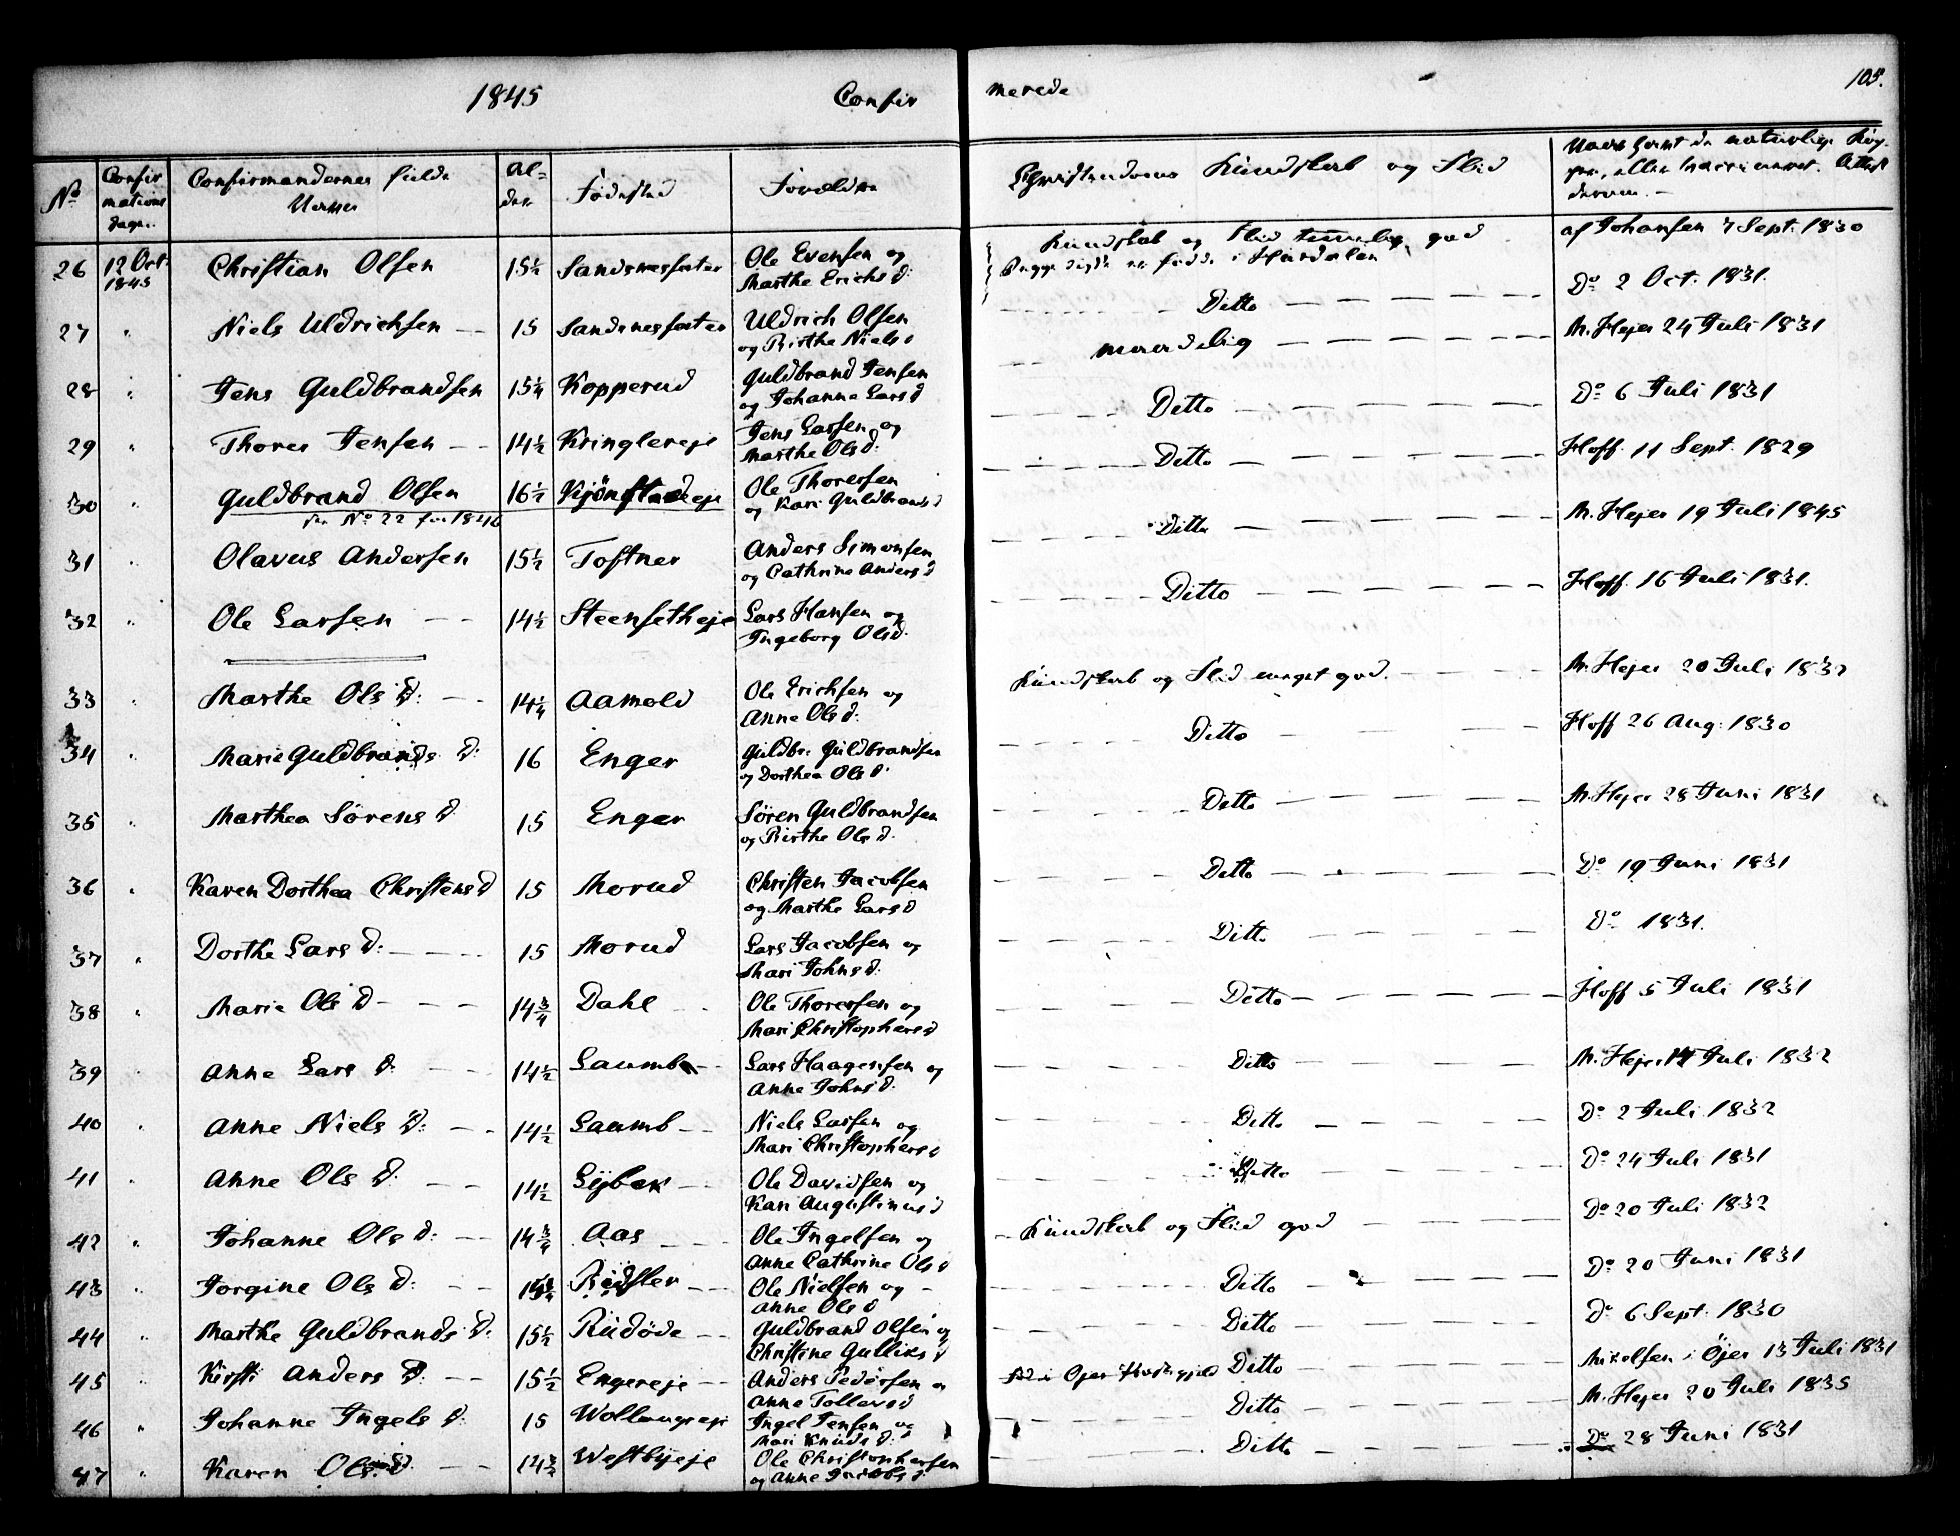 1845 Confir merede 105.
No Confir mations dage. Confirmandernes fulde Navne Al= der Fødested Forældre Christendoms Kundskab og Flid
derom.
26 12 Oct 1845 Christian Olsen 15½ Sandsnesseter Ole Evensen og Marthe Erichs d: Kundskab og Flid temmelig god af Johansen 7 Sept: 1830
27 " Niels Uldrichsen 15 Sandsnesseter Uldrich Olsen og Birthe Niels d Ditto Do 2 Oct. 1831.
28 " Jens Guldbrandsen 15¼ Kopperud Guldbrand Jensen og Johanne Lars d maadelig M. Hejer 24 Juli 1831
29 " Thorer Jensen 14½ Kringlereje Jens Larsen og Marthe Ols d: Ditto Do 6 Juli 1831
30 " Guldbrand Olsen 16½ Kjönstadeje Ole Thoresen og Kari Guldbrands d Ditto Hoff. 11 Sept. 1829
No 22 for 1846
31 " Olavus Andersen 15½ Toftner Anders Simensen og Cathrine Anders d Ditto M. Hejer 19 Juli 1845
32 " Ole Larsen 14½ Steensetheje Lars Hansen og Ingeborg Ols d: Ditto Hoff. 16 Juli 1831.
33 " Marthe Ols d: 14¼ Aamold Ole Erichsen og Anne Ols d: Kundskab og Flid meget god. M. Hejer 20 Juli 1832
34 " Marie Guldbrands d: 16 Enger Guldbr: Guldbrandsen og Dorthea Ols d: Ditto Hoff 26 Aug: 1830
35 " Marthea Sørens d 15 Enger Søren Guldbrandsen og Birthe Ols d: Ditto M. Hejer 28 Juni 1831
36 " Karen Dorthea Christens d 15 Morud Christen Jacobsen og Marthe Lars d Ditto Do 19 Juni 1831
37 " Dorthe Lars d: 15 Morud Lars Jacobsen og Mari Johns d: Ditto Do 1831.
38 " Marie Ols d 14¾ Dahl Ole Thoresen og Mari Christophers d Ditto Hoff 5 Juli 1831
39 " Anne Lars d: 14½ Laumb Lars Haagensen og Anne Johns d: Ditto M. Hejer 14 Juli 1832
40 " Anne Niels d: 14½ Laumb Niels Larsen og Mari Christophers d Ditto Do 2 Juli 1832
41 " Anne Ols d: 14½ Lybek Ole Davidsen og Kari Augustinus d Ditto Do 24 Juli 1831
42 " Johanne Ols d: 14¾ Aas Ole Ingelsen og Anne Cathrine Ols d Kundskab og Flid god Do 20 Juli 1832
43 " Jorgine Ols d: Ole Nielsen og Anne Ols d Ditto Do 20 Juni 1831
44 " Marthe Guldbrands d: 15½ Rudöde Guldbrand Olsen og Christine Gulliks d Ditto Do 6 Sept: 1830
45 " Kirsti Anders d: 15½ Engereje Anders Pedersen og Anne Tollevs d Ditto Mikelsen i Öjer 13 Juli 1831
46 " Johanne Ingels d: 15 Ingel Jensen og Mari Knuds d: Ditto M. Hejer 20 Juli 1835
47 " Karen Ols d 14¾ Westbyeje Ole Christophersen og Anne Jacobs d Ditto Do 28 Juni 1831